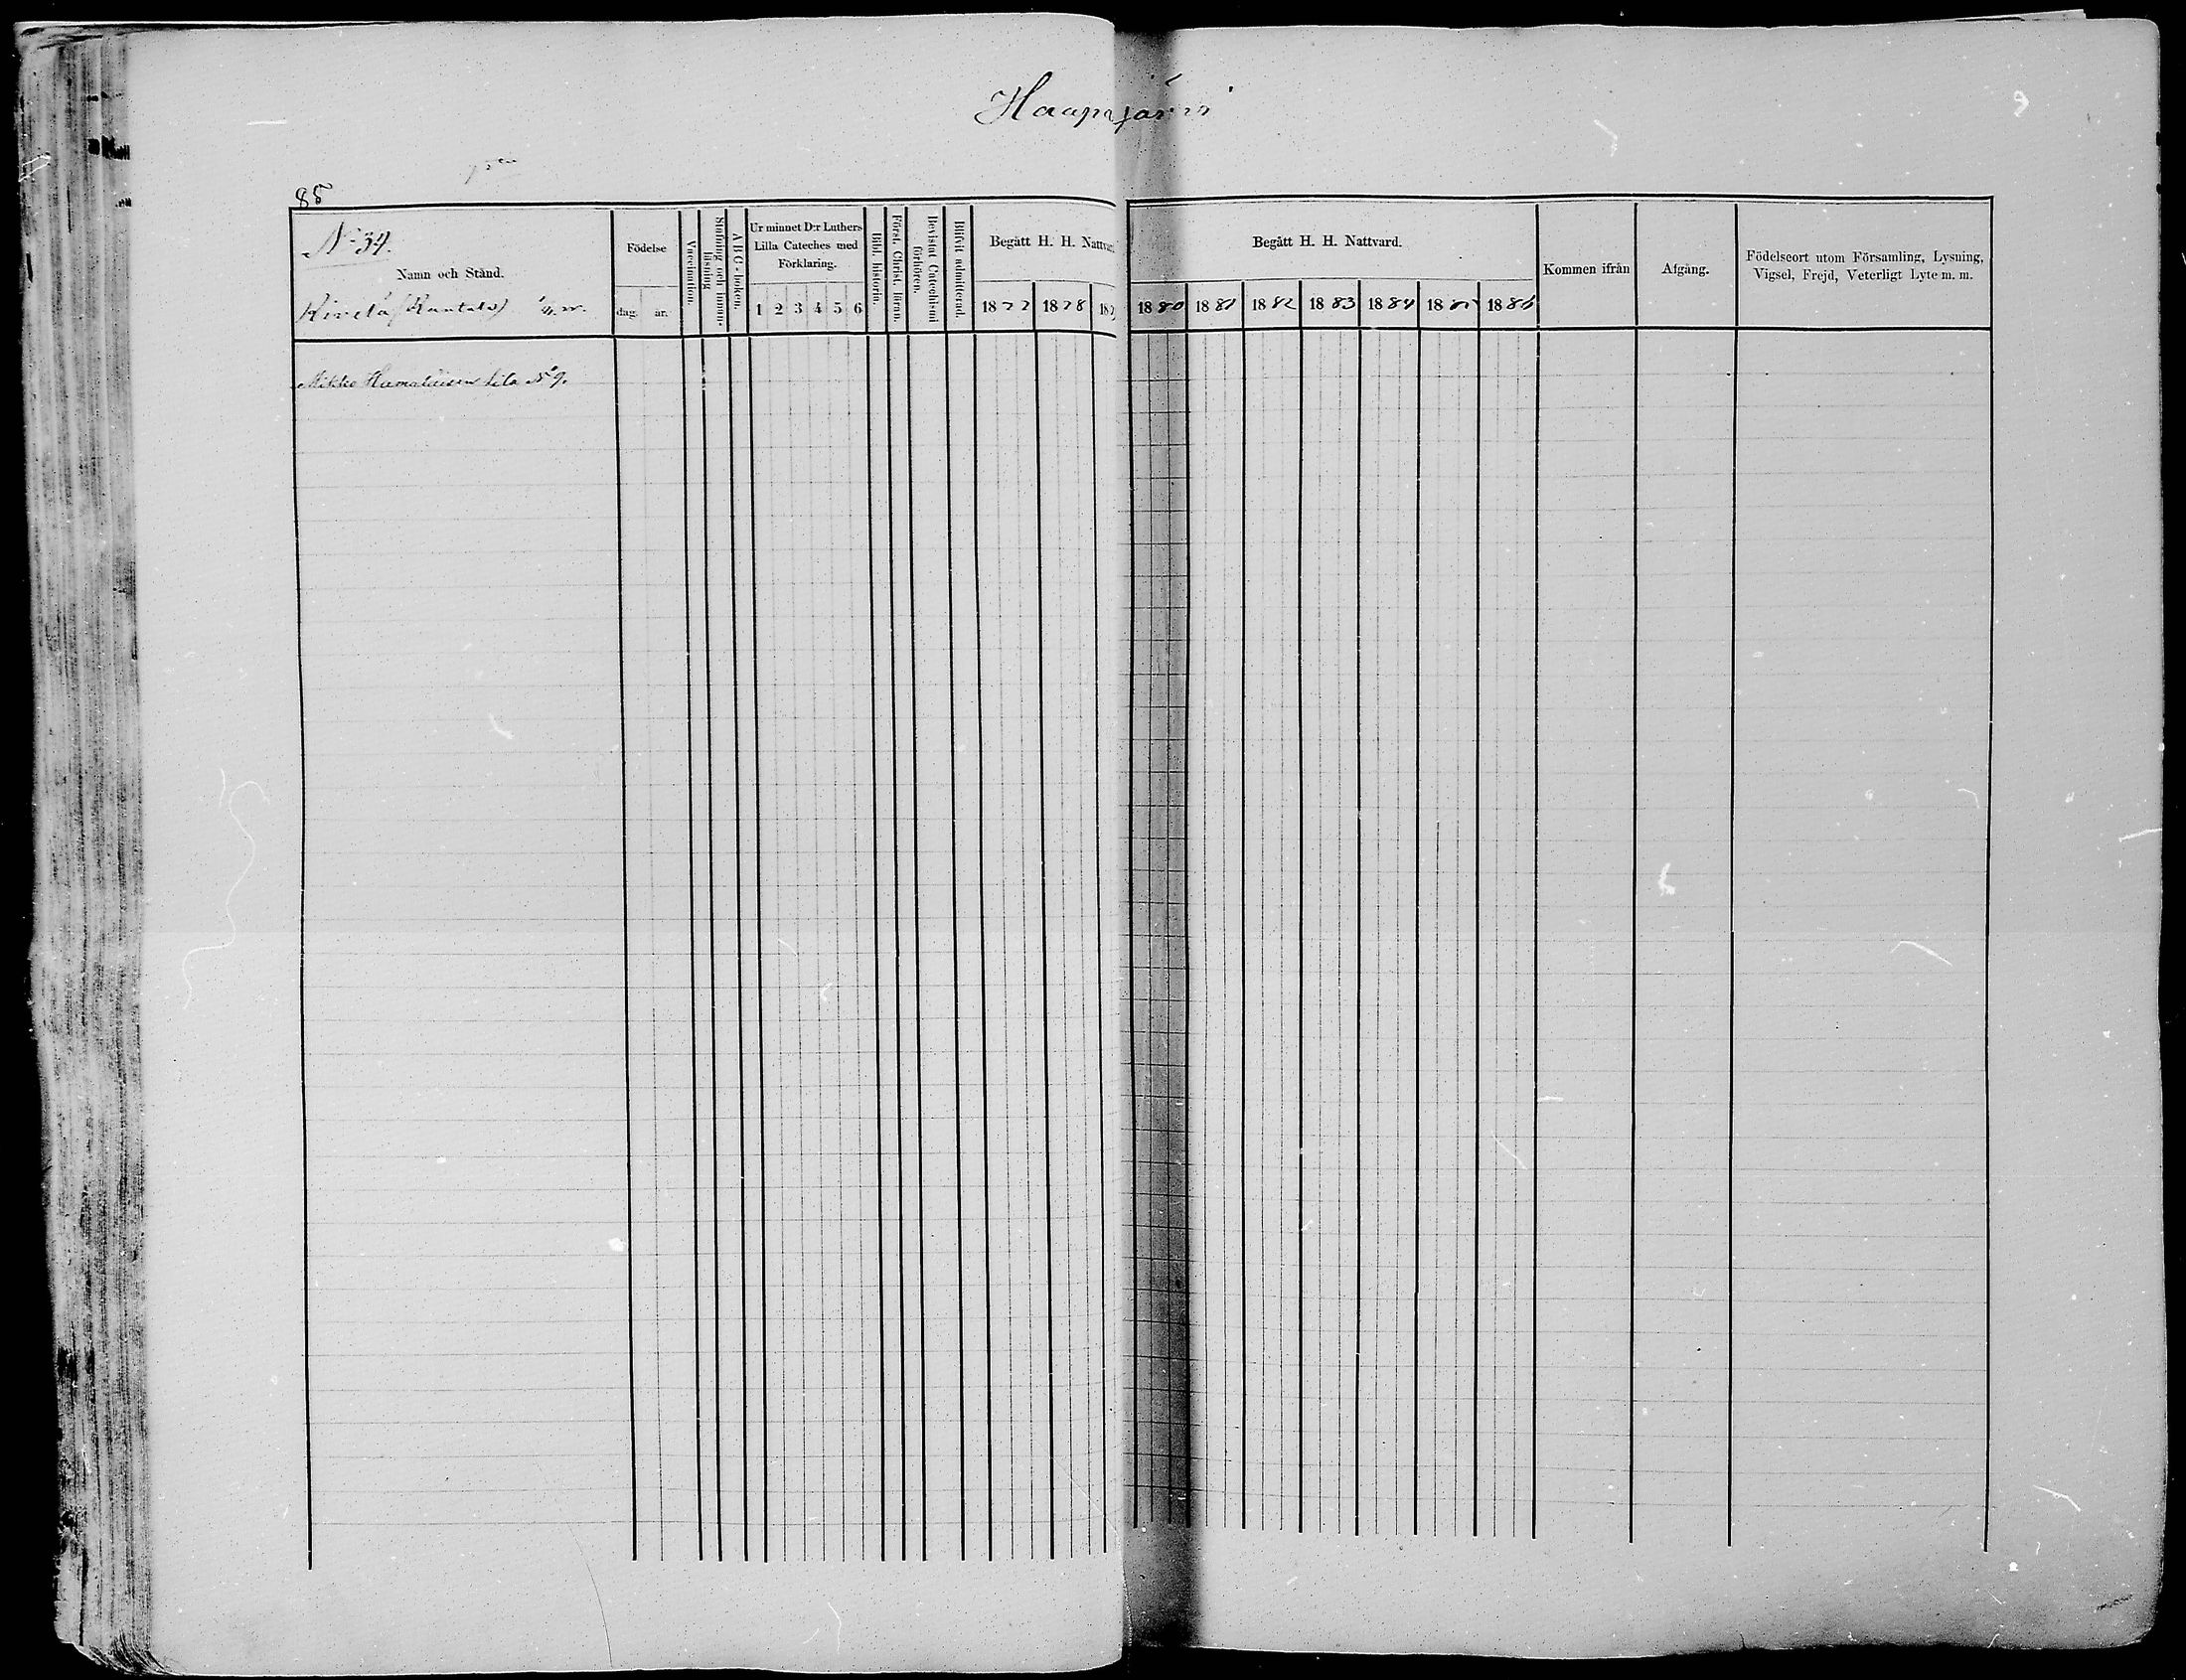 Haapajärvi
85
N:o 34.
Namn och Stånd.
Födelse
dag. år.
Vaccination.
Stafning och innan-
läsning
A B C-boken.
Ur minnet D:r Luthers
Lilla Cateches med
Förklaring.
1 2 3 4 5 6
Bibl. historia.
Först. Christ. läran.
Bevistat Catechismi
förhören.
Blifvit admitterad.
Begått H. H. Nattvar
1877 1878 187
Mikko Hamalaisen tila N:o 9.
Begått H. H. Nattvard.
1880 1881 1882 1883 1884 1885 1886
Kommen ifrån
Afgång.
Födelseort utom Församling, Lysning,
Vigsel, Frejd, Veterligt Lyte m. m.